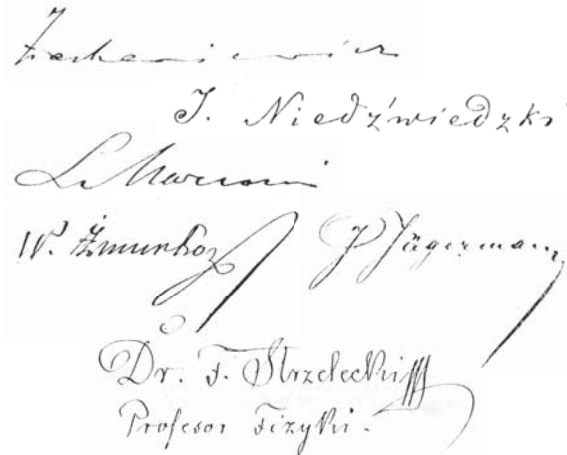 Zachariewicz
J. Niedźwiedzki
L. Marconi
W. Żmurko J. Jägermann
Dr. F. Strzelecki
Profesor Fizyki.